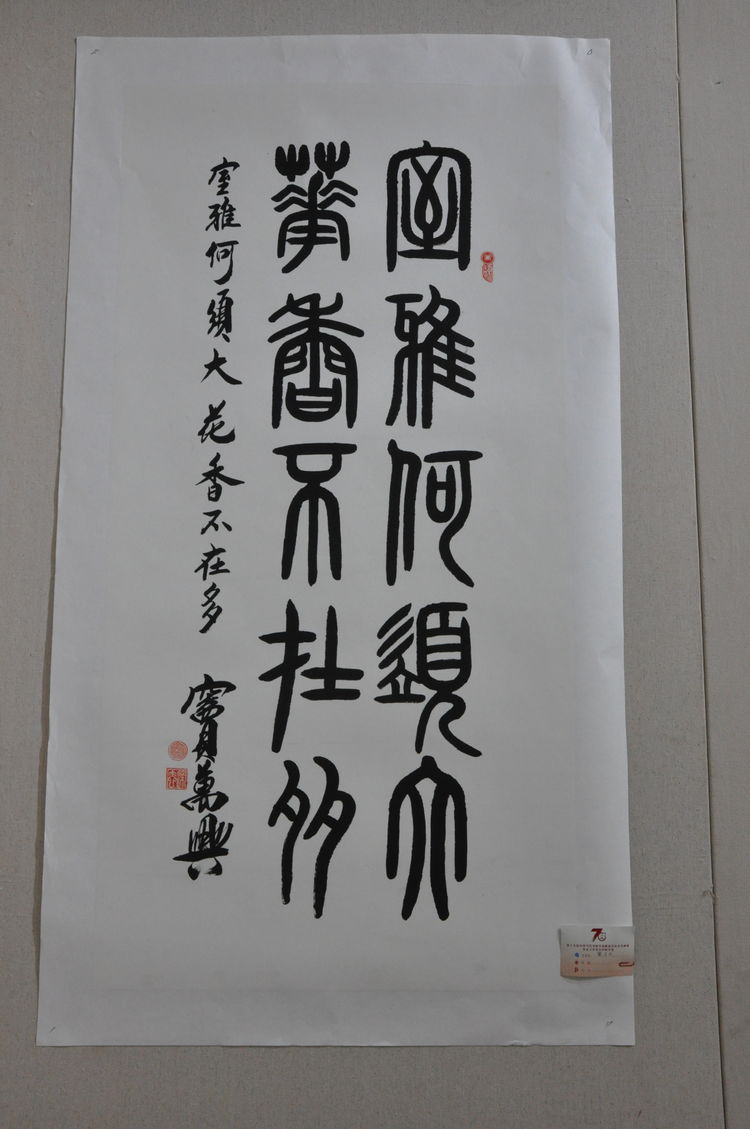 室雅何須大
華香不在多
室雅何須大 花香不在多
萬興
70